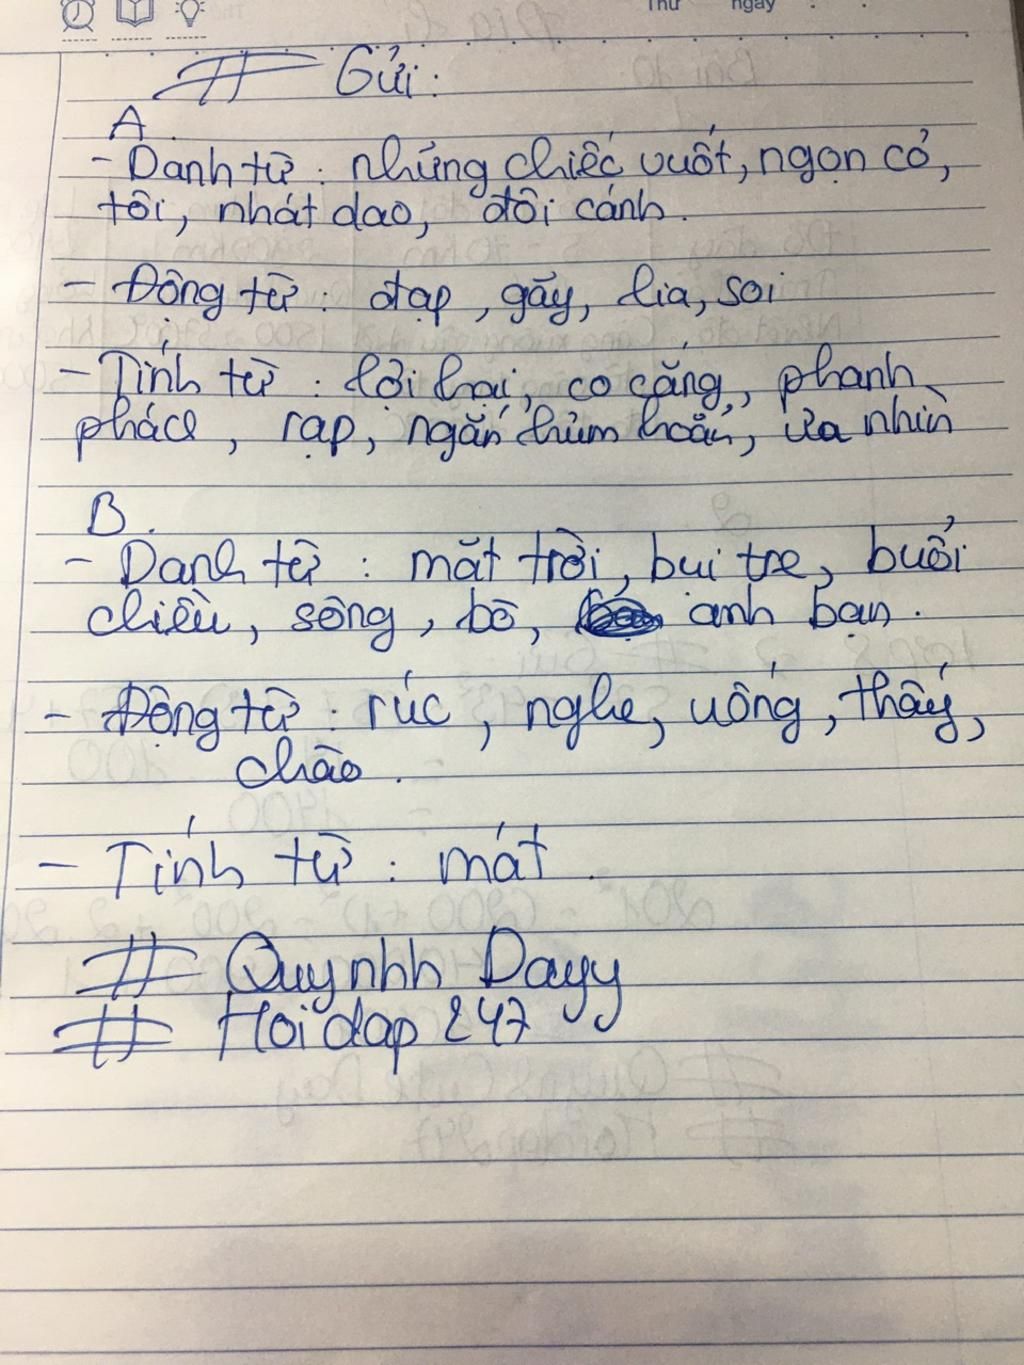 Thứ ngày
# Gửi:
A.
- Danh từ : những chiếc vuốt, ngọn cỏ,
tôi, nhát dao, đôi cánh.
- Động từ : đạp, gãy, lia, soi
- Tính từ : lợi hại, co cẳng, phanh
phách, rạp, ngắn hủm hoẳn, ưa nhìn
B.
- Danh từ : mặt trời, bụi tre, buổi
chiều, sông, bò, anh bạn.
- Động từ : rúc, nghe, uống, thấy,
chào.
- Tính từ : mát.
# Quynhh Dayy
# Hoidap247